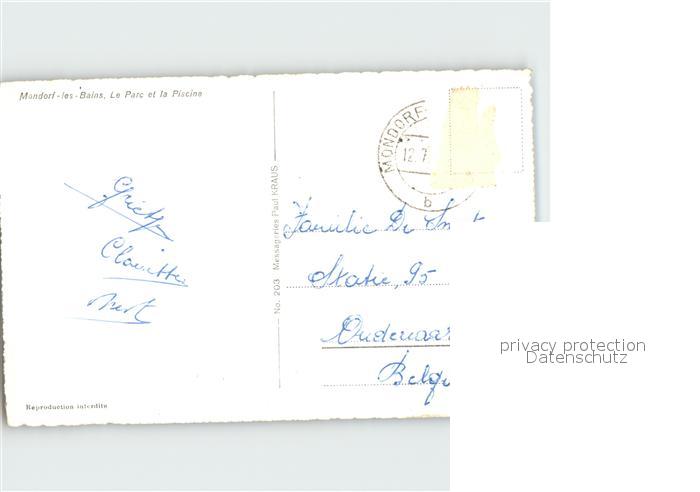 Mondorf-les-Bains, Le Parc et la Piscine
MONDORF
12.7
b
No. 203 Messageries Paul KRAUS
Familie De
Statie, 95
Oudenaar
Belgi
Reproduction interdite
privacy protection
Datenschutz